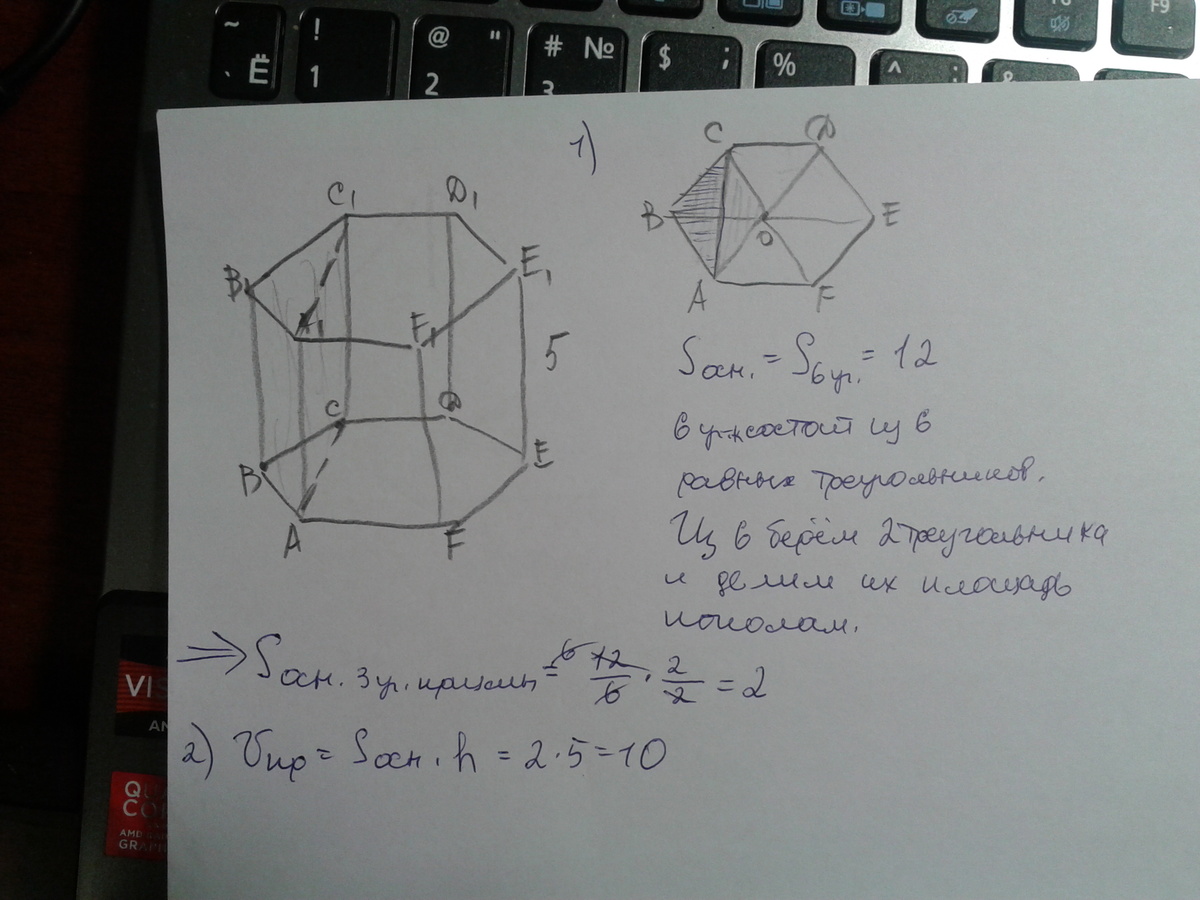 ~ Ё
! 1
@ " 2
# № 3
$ ;
%
^ :
&
F9
1)
C D
B O E
A F
C₁ D₁
B₁ E₁
A₁ F₁
5
C D
B E
A F
Sосн. = S6уг. = 12
6 уг. состоит из 6
равных треугольников.
Из 6 берём 2 треугольника
и делим их площадь
пополам.
⇒ Sосн. 3 уг. призмы = 12/6 · 2/2 = 2
2) Vпр = Sосн. · h = 2 · 5 = 10
VIS
AM
QU
CO
AMD
GRAPH